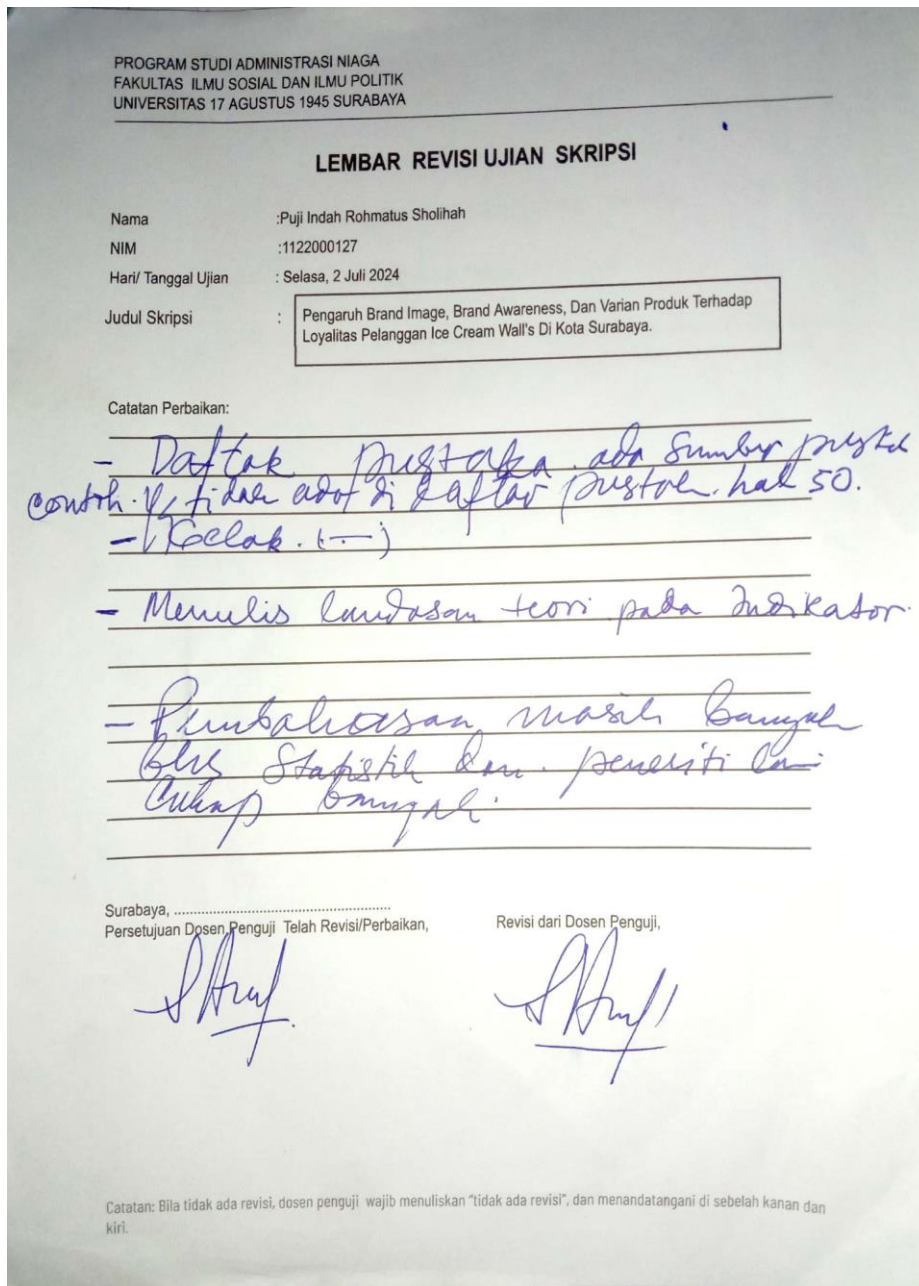 PROGRAM STUDI ADMINISTRASI NIAGA
FAKULTAS ILMU SOSIAL DAN ILMU POLITIK
UNIVERSITAS 17 AGUSTUS 1945 SURABAYA
LEMBAR REVISI UJIAN SKRIPSI
Nama :Puji Indah Rohmatus Sholihah
NIM :1122000127
Hari/ Tanggal Ujian : Selasa, 2 Juli 2024
Judul Skripsi : Pengaruh Brand Image, Brand Awareness, Dan Varian Produk Terhadap
Loyalitas Pelanggan Ice Cream Wall's Di Kota Surabaya.
Catatan Perbaikan:
- Daftar pustaka ada sumber
contoh tidak ada di daftar hal 50.
-
- Menulis landasan teori pada Indikator.
- Pembahasan masih banyak
Statistik dan peneliti
Cukup
Surabaya, ........................................................
Persetujuan Dosen Penguji Telah Revisi/Perbaikan, Revisi dari Dosen Penguji,
Catatan: Bila tidak ada revisi, dosen penguji wajib menuliskan "tidak ada revisi", dan menandatangani di sebelah kanan dan
kiri.